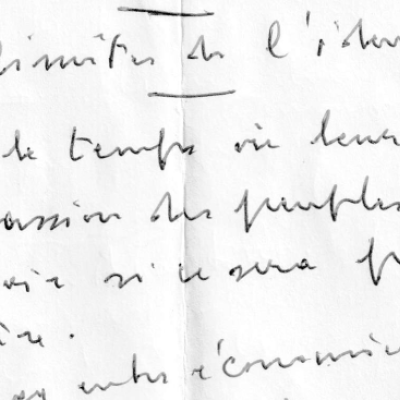 limites de l'iden
le temps où leur
passion des peuples
si ce sera p
ire.
entre économi